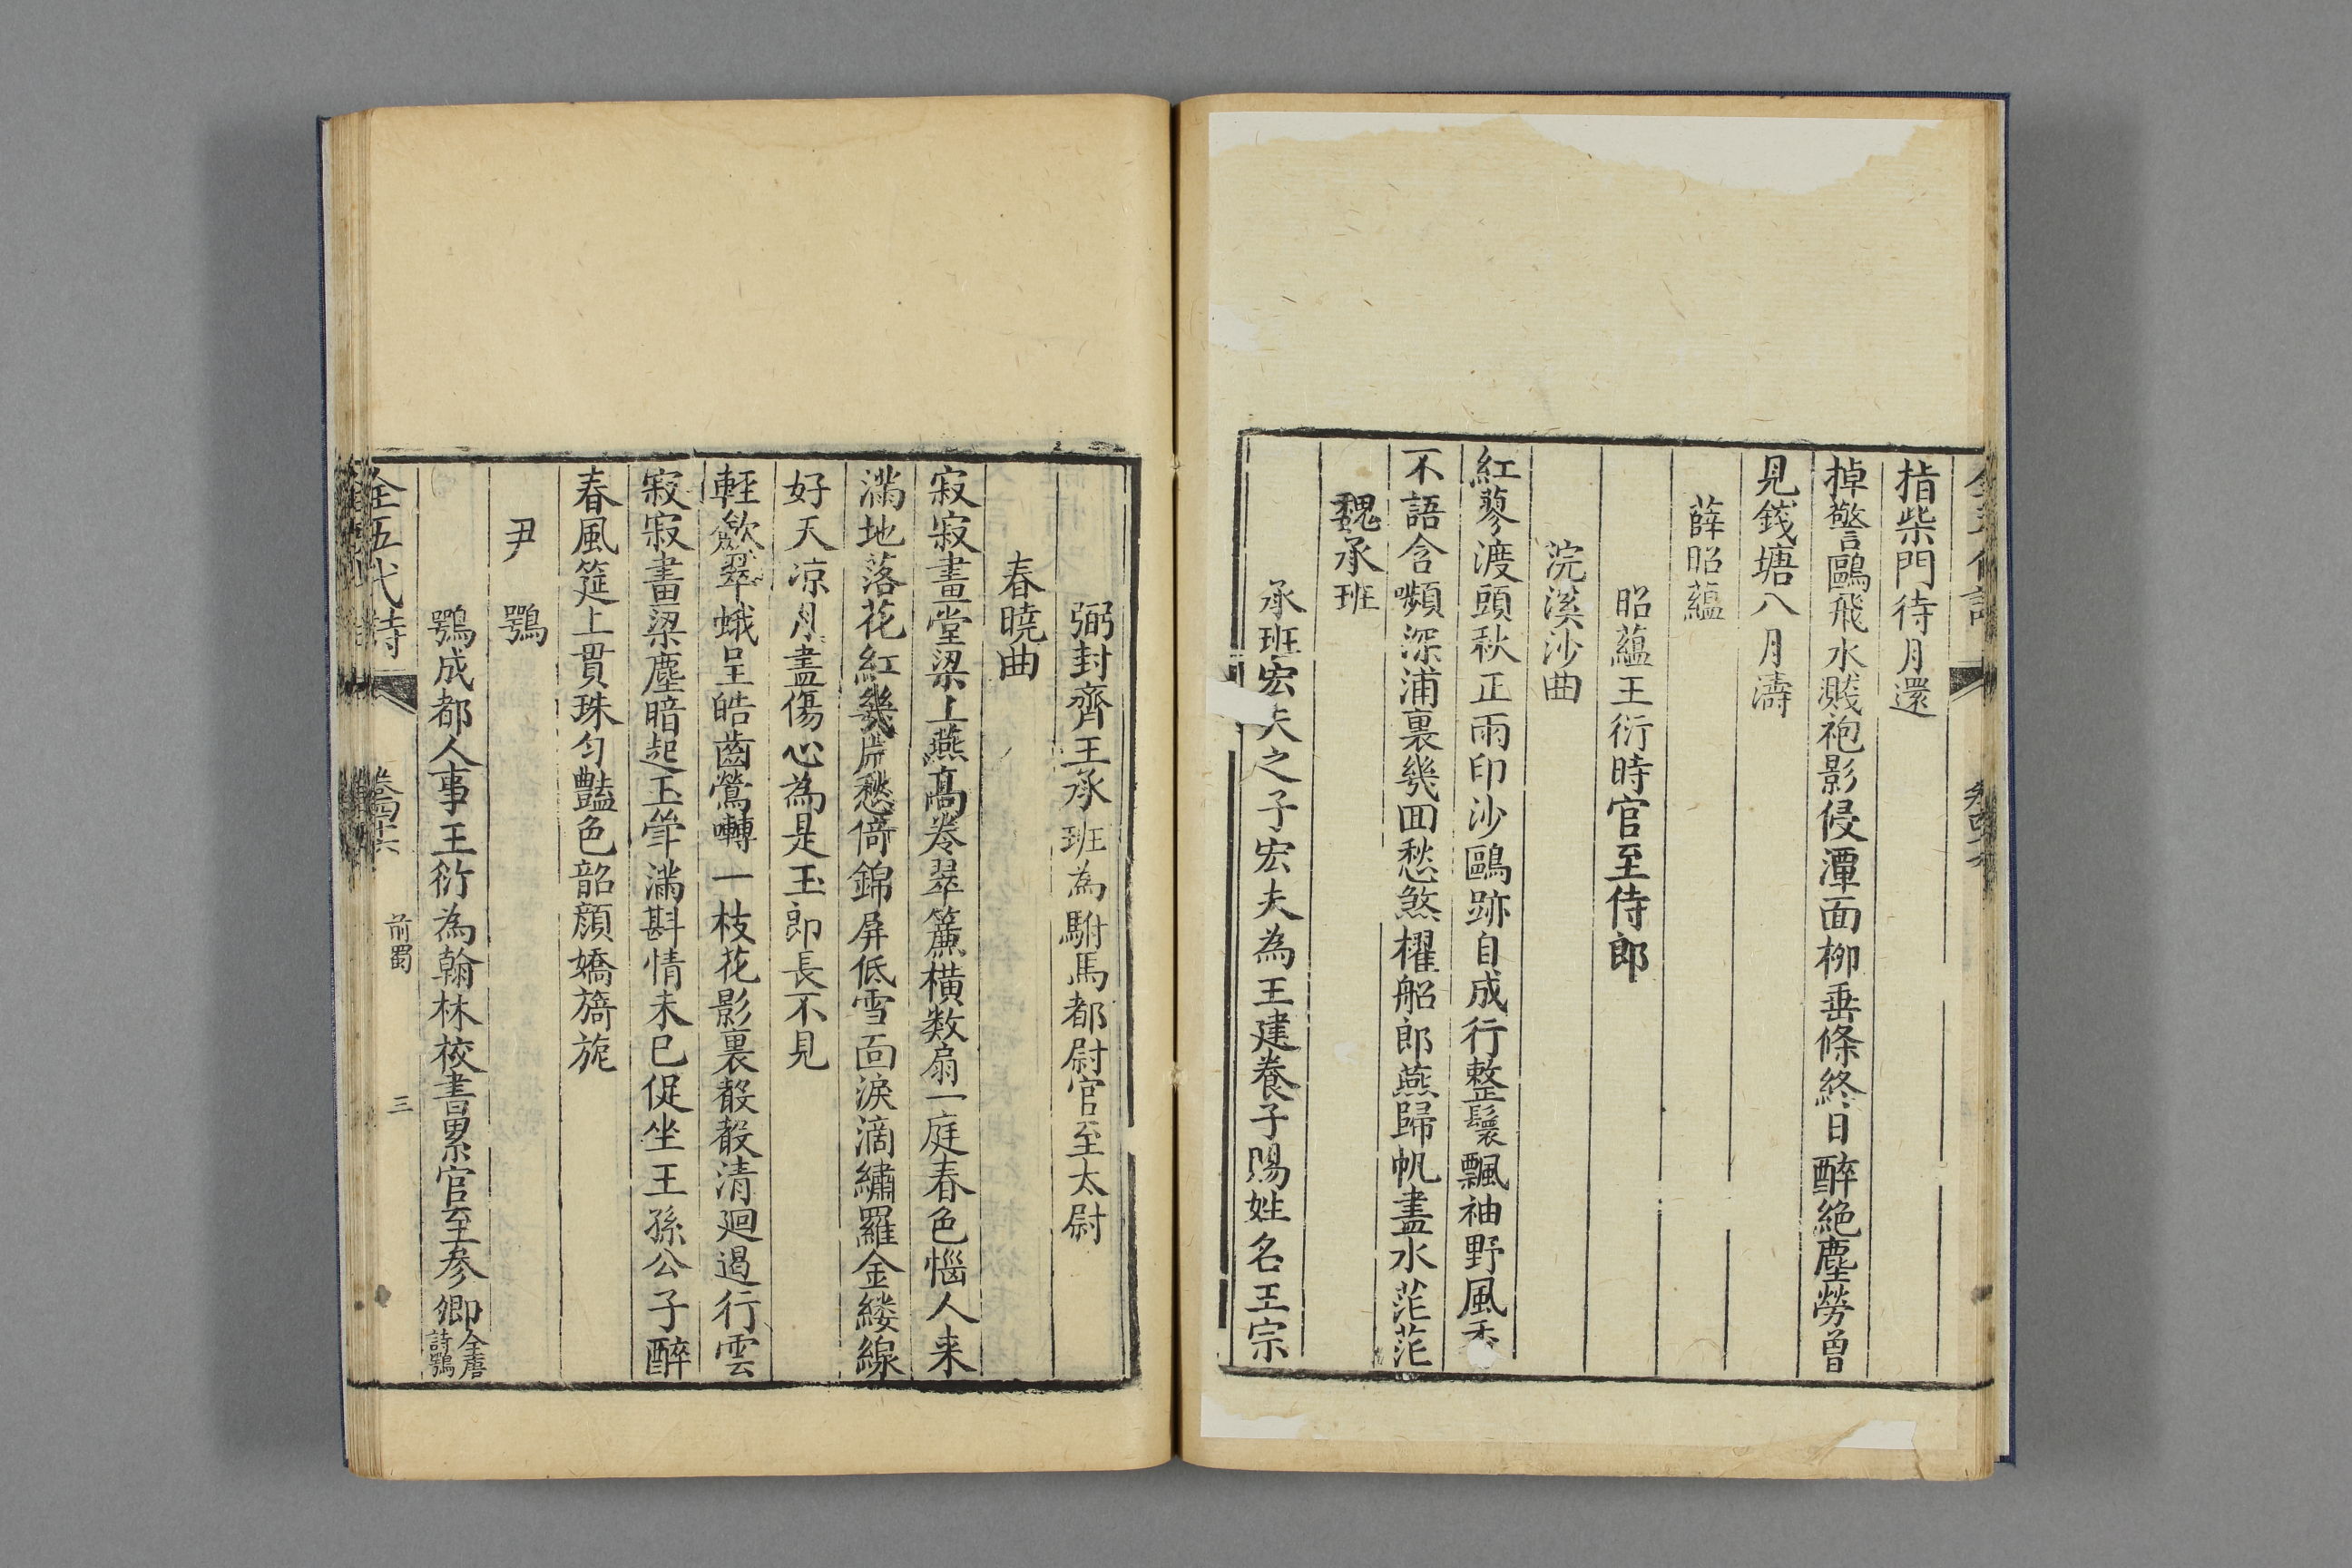 指柴門待月還
掉警鷗飛水濺袍影侵潭面柳垂條終日醉絶塵勞曾
見錢塘八月濤
薛昭蘊
昭蘊王衍時官至侍郎
浣溪沙曲
紅蓼渡頭秋正雨印沙鷗跡自成行整鬟飄袖野風香
不語含嚬深浦裏幾回愁煞櫂船郎燕歸帆盡水茫茫
魏承班
承班宏夫之子宏夫為王建養子賜姓名王宗
弼封齊王承班為駙馬都尉官至太尉
春曉曲
寂寂畫堂梁上燕高卷翠簾橫數扇一庭春色惱人来
滿地落花紅幾片愁倚錦屏低雪面淚滴繡羅金縷線
好天凉月盡傷心為是玉郎長不見
輕斂翠蛾呈皓齒鶯囀一枝花影裏聲聲清迥遏行雲
寂寂畫梁塵暗起玉斝滿斟情未已促坐王孫公子醉
春風筵上貫珠匀豔色韶顔嬌旖旎
尹鶚
鶚成都人事王衍為翰林校書累官至參卿全唐詩鶚
全五代詩 卷四十六 前蜀 三